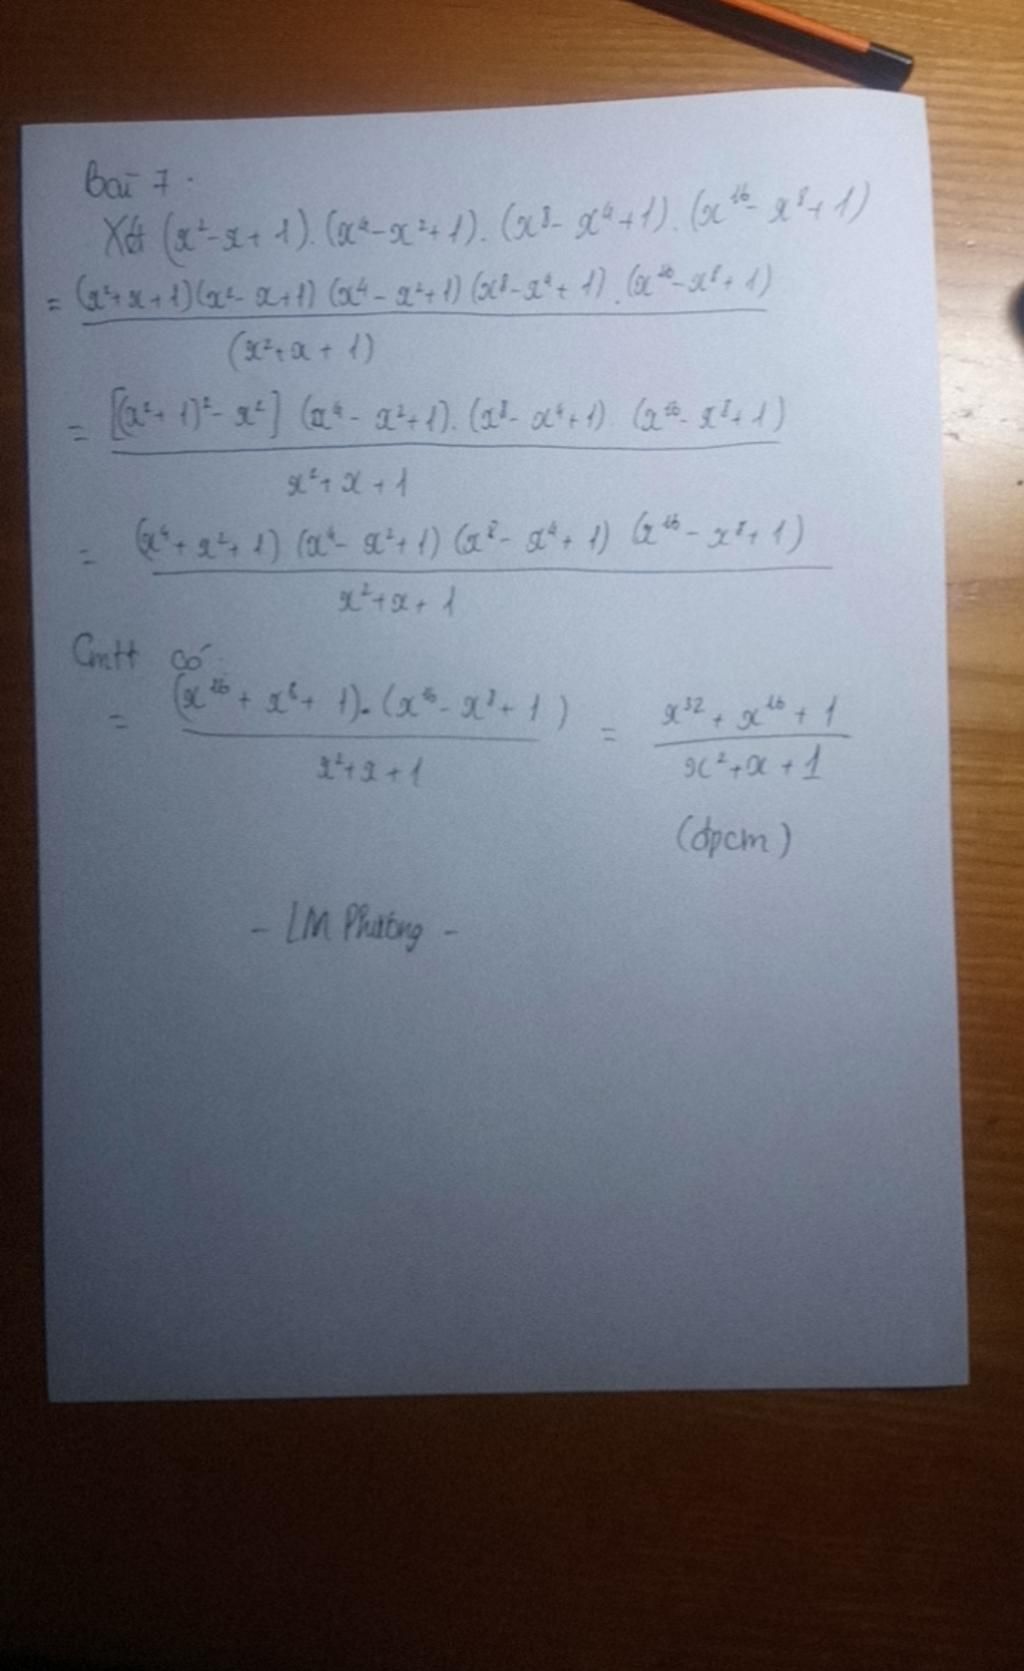 Bài 7.
Xét (x²-x+1).(x⁴-x²+1).(x⁸-x⁴+1).(x¹⁶-x⁸+1)
= (x²+x+1)(x²-x+1)(x⁴-x²+1)(x⁸-x⁴+1).(x¹⁶-x⁸+1)
(x²+x+1)
= [(x²+1)²-x²] (x⁴-x²+1).(x⁸-x⁴+1).(x¹⁶-x⁸+1)
x²+x+1
= (x⁴+x²+1)(x⁴-x²+1)(x⁸-x⁴+1)(x¹⁶-x⁸+1)
x²+x+1
Cmtt có
= (x¹⁶+x⁸+1).(x¹⁶-x⁸+1) = x³²+x¹⁶+1
x²+x+1 x²+x+1
(đpcm)
- LM Phương -